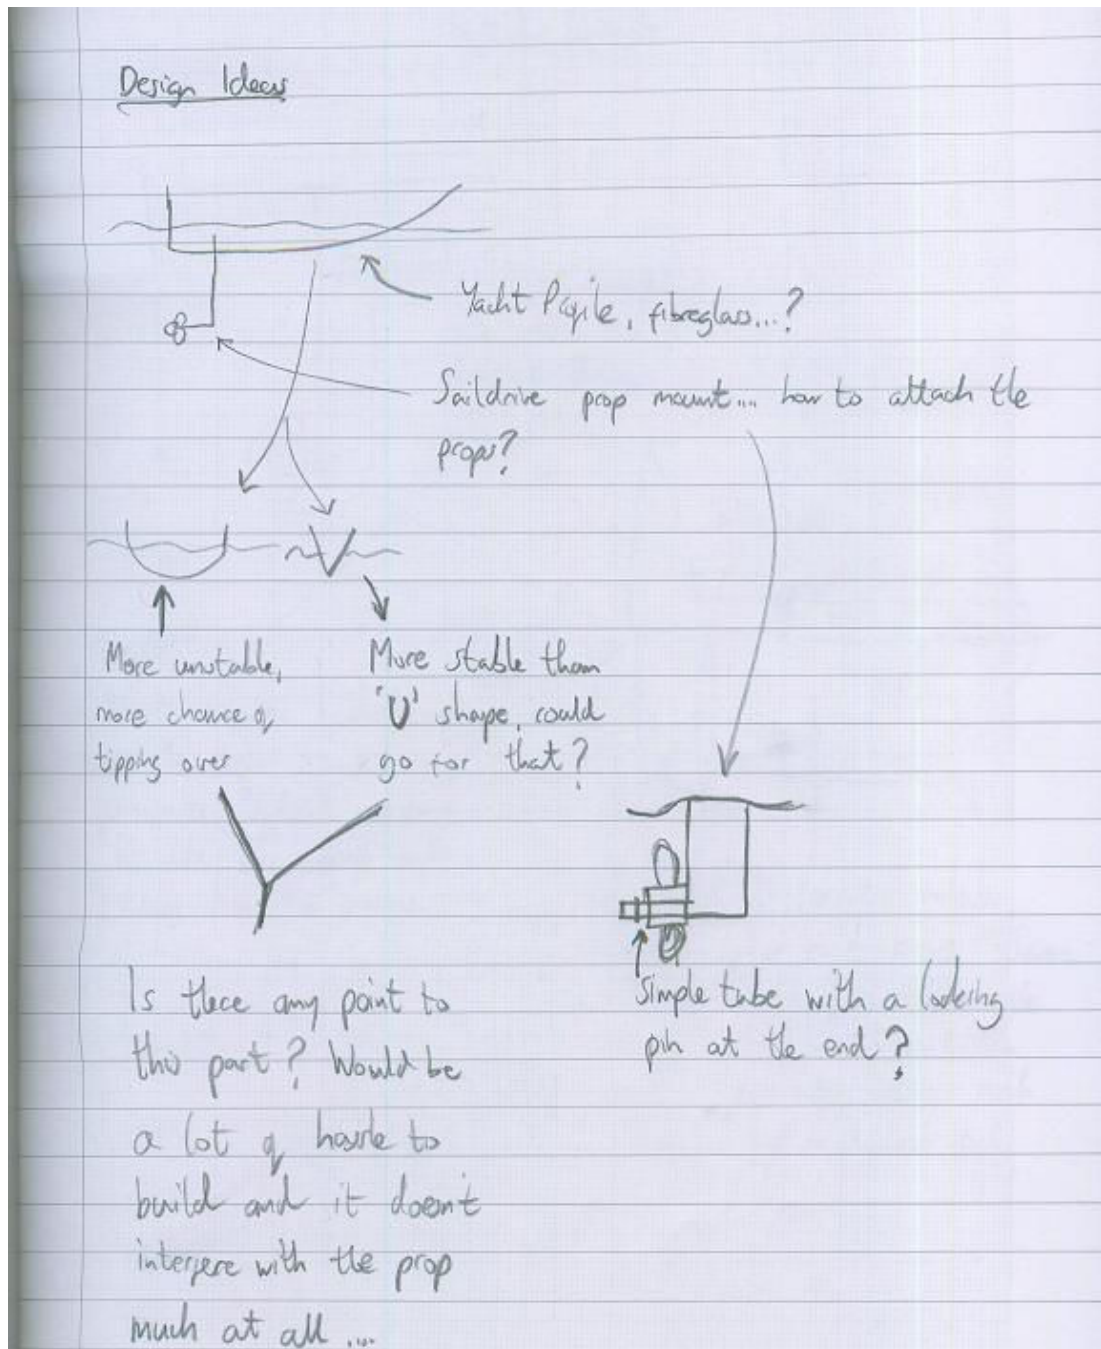 Design Ideas
Yacht Profile, fibreglass...?
Saildrive prop mount.... how to attach the
props?
More unstable,
more chance of
tipping over
More stable than
'U' shape, could
go for that?
Is there any point to
this part? Would be
a lot of hassle to
build and it doesn't
interfere with the prop
much at all ....
Simple tube with a locking
pin at the end?